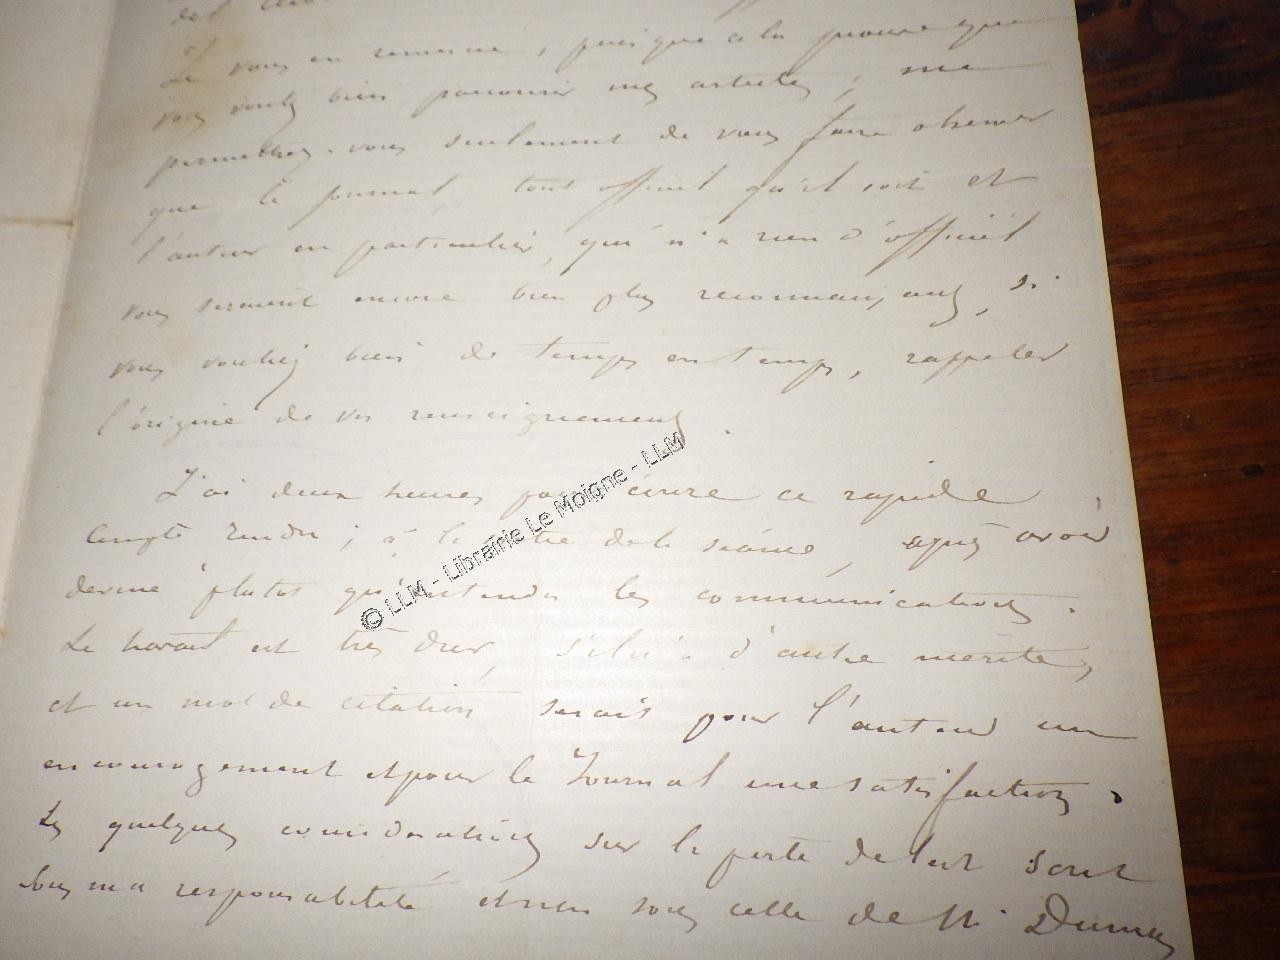 Je vous en remercie, puisque cela prouve que
vous voulez bien parcourir mes articles, me
permettrez-vous seulement de vous faire observer
que le journal, tout officiel qu'il soit et
l'auteur en particulier, qui n'a rien d'officiel
vous seraient encore bien plus reconnaissants, si
vous vouliez bien de temps en temps, rappeler
l'origine de vos renseignements.
J'ai deux heures pour écrire ce rapide
compte rendu ; à la de la séance, après avoir
deviné plutôt qu'entendu les communications.
Le travail est très dur, s'il n'a d'autre mérite,
et un mot de citation serait pour l'auteur un
encouragement et pour le Journal une satisfaction.
Les quelques considérations sur la perte de sont
sous ma responsabilité et non sous celle de M. Dumas
© LLM - Librairie Le Moigne - LLM